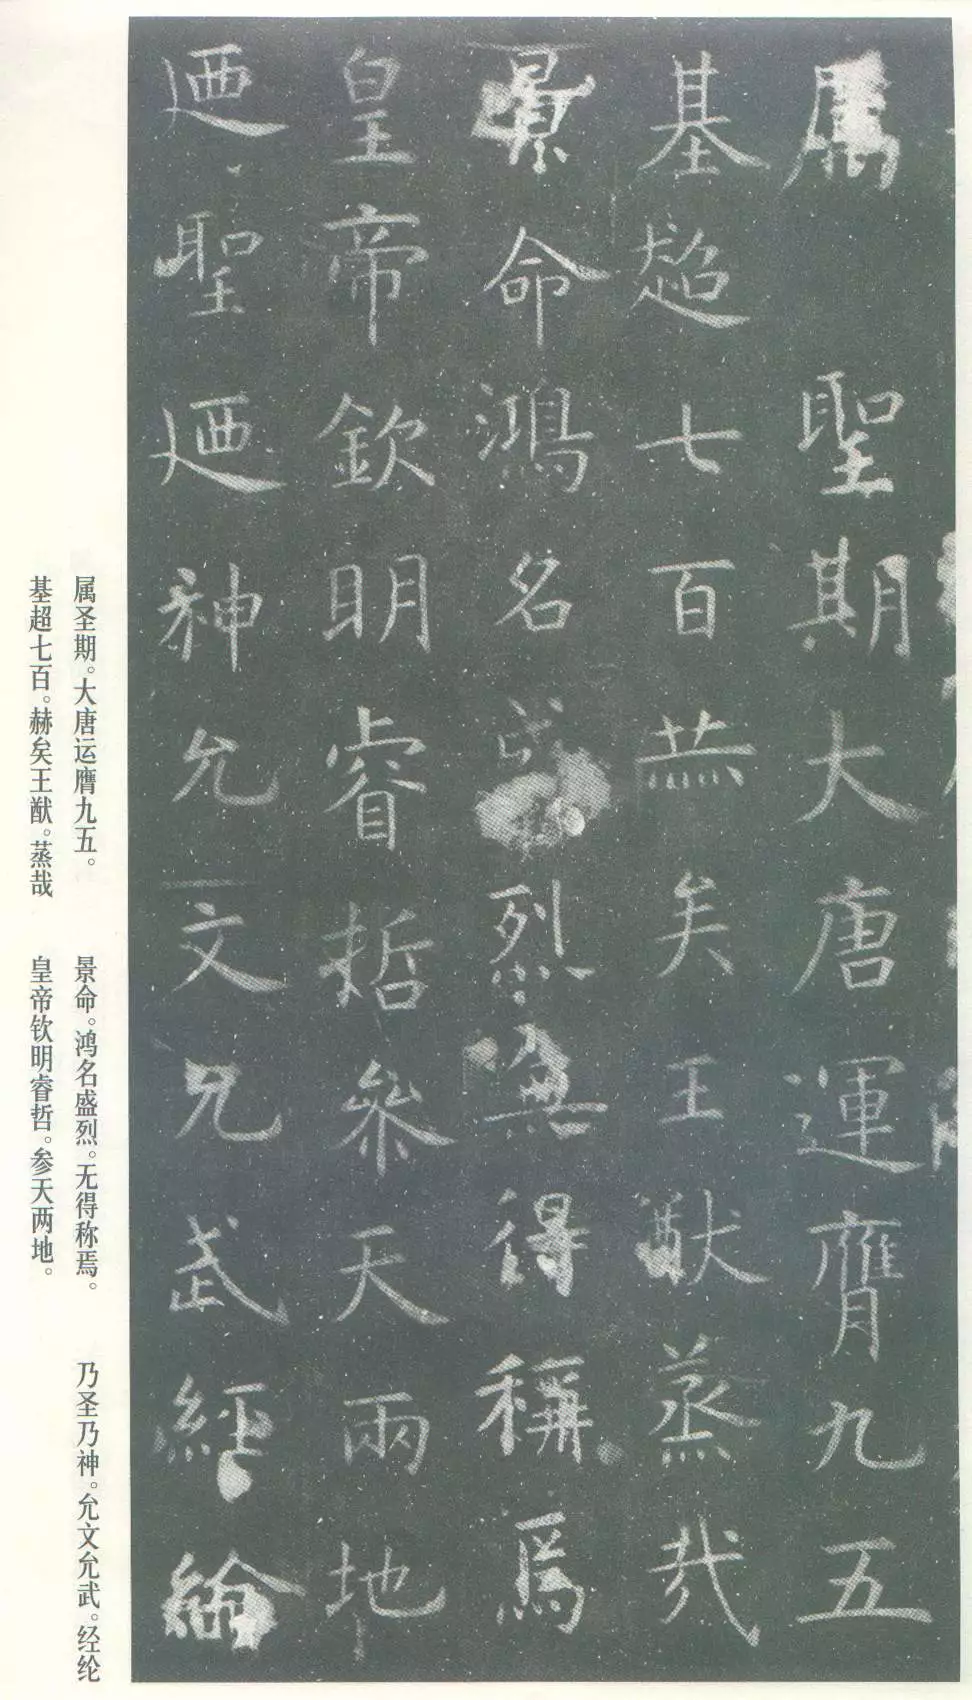 属聖期大唐運膺九五
基超七百赫矣王猷蒸哉
景命鴻名盛烈無得稱焉
皇帝欽明睿哲參天兩地
迺聖迺神允文允武經綸
属圣期。大唐运膺九五。
基超七百。赫矣王猷。蒸哉
景命。鸿名盛烈。无得称焉。
皇帝钦明睿哲。参天两地。
乃圣乃神。允文允武。经纶